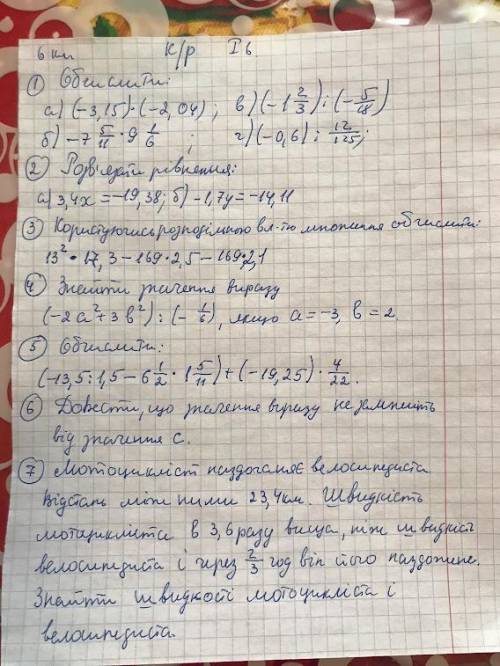 6 кл К/р І в.
① Обчислити:
а) (-3,15)·(-2,04); в) (-1 2/3) : (-5/18)
б) -7 5/11 · 9 1/6 ; г) (-0,6) : 12/125;
② Розв'язати рівняння:
а) 3,4x = -19,38; б) -1,7y = -14,11
③ Користуючись розподільною вл-тю множення обчислити:
13² · 17,3 - 169 · 2,5 - 169 · 2,1
④ Знайти значення виразу
(-2a² + 3b²) : (-1/6), якщо a = -3, b = 2.
⑤ Обчислити:
(-13,5 : 1,5 - 6 1/2 · 1 5/11) + (-19,25) · 4/22.
⑥ Довести, що значення виразу не залежить
від значення с.
⑦ Мотоцикліст наздоганяє велосипедиста
Відстань між ними 23,4 км. Швидкість
мотоцикліста в 3,6 разу вища, ніж швидкість
велосипедиста і через 2/3 год він його наздожене.
Знайти швидкості мотоцикліста і
велосипедиста.